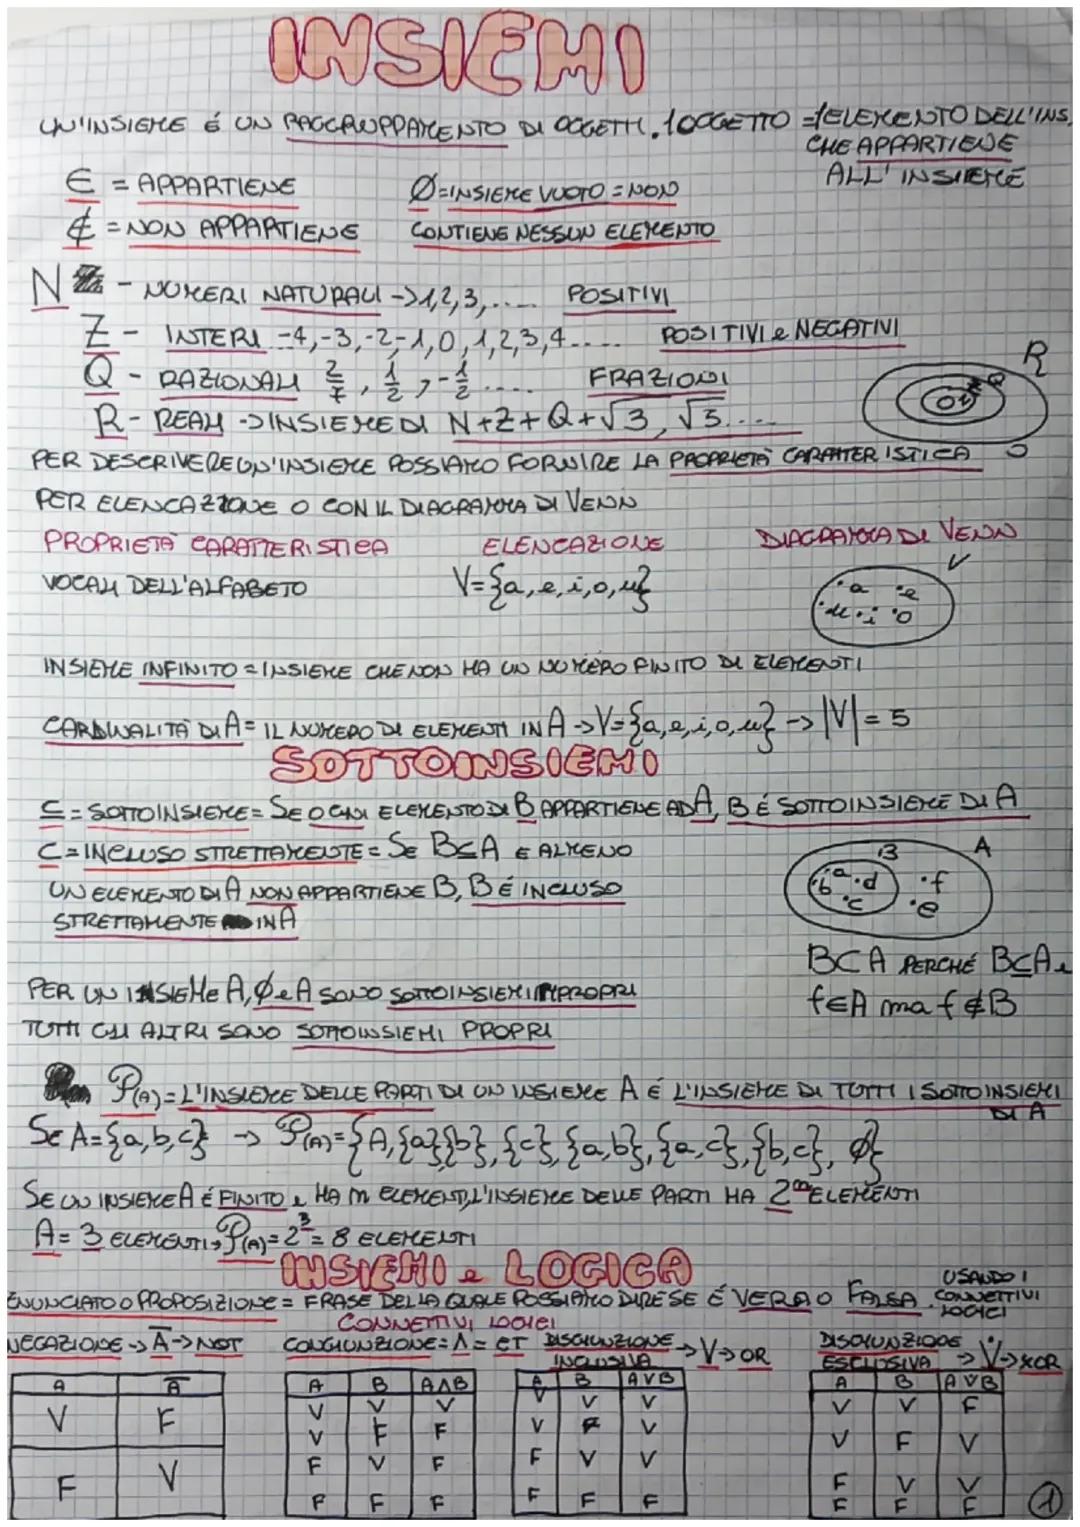 INSIEMI
UN'INSIEME É UN RAGGRUPPAMENTO DI OGGETTI. 1 OGGETTO = 1 ELEMENTO DELL'INS.
CHE APPARTIENE
ALL' INSIEME
∈ = APPARTIENE
∅ = INSIEME VUOTO = NON
∉ = NON APPARTIENE
CONTIENE NESSUN ELEMENTO
N - NUMERI NATURALI -> 1,2,3,..... POSITIVI
Z - INTERI -4,-3,-2,-1,0,1,2,3,4..... POSITIVI e NEGATIVI
Q - RAZIONALI 2/7, 1/2, -1/2 ..... FRAZIONI
R
R - REALI -> INSIEME DI N+Z+Q+√3, √5....
PER DESCRIVERE UN'INSIEME POSSIAMO FORNIRE LA PROPRIETÀ CARATTERISTICA
PER ELENCAZIONE O CON IL DIAGRAMMA DI VENN
PROPRIETÀ CARATTERISTICA ELENCAZIONE DIAGRAMMA DI VENN
VOCALI DELL'ALFABETO V={a,e,i,o,u}
V
a e
u i o
INSIEME INFINITO = INSIEME CHE NON HA UN NUMERO FINITO DI ELEMENTI
CARDINALITÀ DI A = IL NUMERO DI ELEMENTI IN A -> V={a,e,i,o,u} -> |V| = 5
SOTTOINSIEMI
⊆ = SOTTOINSIEME = SE OGNI ELEMENTO DI B APPARTIENE AD A, B É SOTTOINSIEME DI A
⊂ = INCLUSO STRETTAMENTE = SE B⊆A E ALMENO
UN ELEMENTO DI A NON APPARTIENE B, B É INCLUSO
STRETTAMENTE IN A
B A
a b d f
c e
B⊂A PERCHÉ B⊆A e
f∈A ma f∉B
PER UN INSIEME A, ∅ e A SONO SOTTOINSIEMI IMPROPRI
TUTTI GLI ALTRI SONO SOTTOINSIEMI PROPRI
P(A) = L'INSIEME DELLE PARTI DI UN INSIEME A É L'INSIEME DI TUTTI I SOTTOINSIEMI
DI A
SE A={a,b,c} -> P(A)={A,{a}{b},{c},{a,b},{a,c},{b,c}, ∅}
SE UN INSIEME A É FINITO e HA m ELEMENTI, L'INSIEME DELLE PARTI HA 2^m ELEMENTI
A = 3 ELEMENTI, P(A) = 2^3 = 8 ELEMENTI
INSIEMI e LOGICA
ENUNCIATO O PROPOSIZIONE = FRASE DELLA QUALE POSSIAMO DIRE SE É VERA O FALSA.
USANDO I
CONNETTIVI
LOGICI
CONNETTIVI LOGICI
NEGAZIONE -> A̅ -> NOT
CONGIUNZIONE = ∧ = ET
DISGIUNZIONE
INCLUSIVA -> V -> OR
DISGIUNZIONE
ESCLUSIVA -> V̇ -> XOR
A A̅
V F
F V
A B A∧B
V V V
V F F
F V F
F F F
A B A∨B
V V V
V F V
F V V
F F F
A B A V̇ B
V V F
V F V
F V V
F F F
1